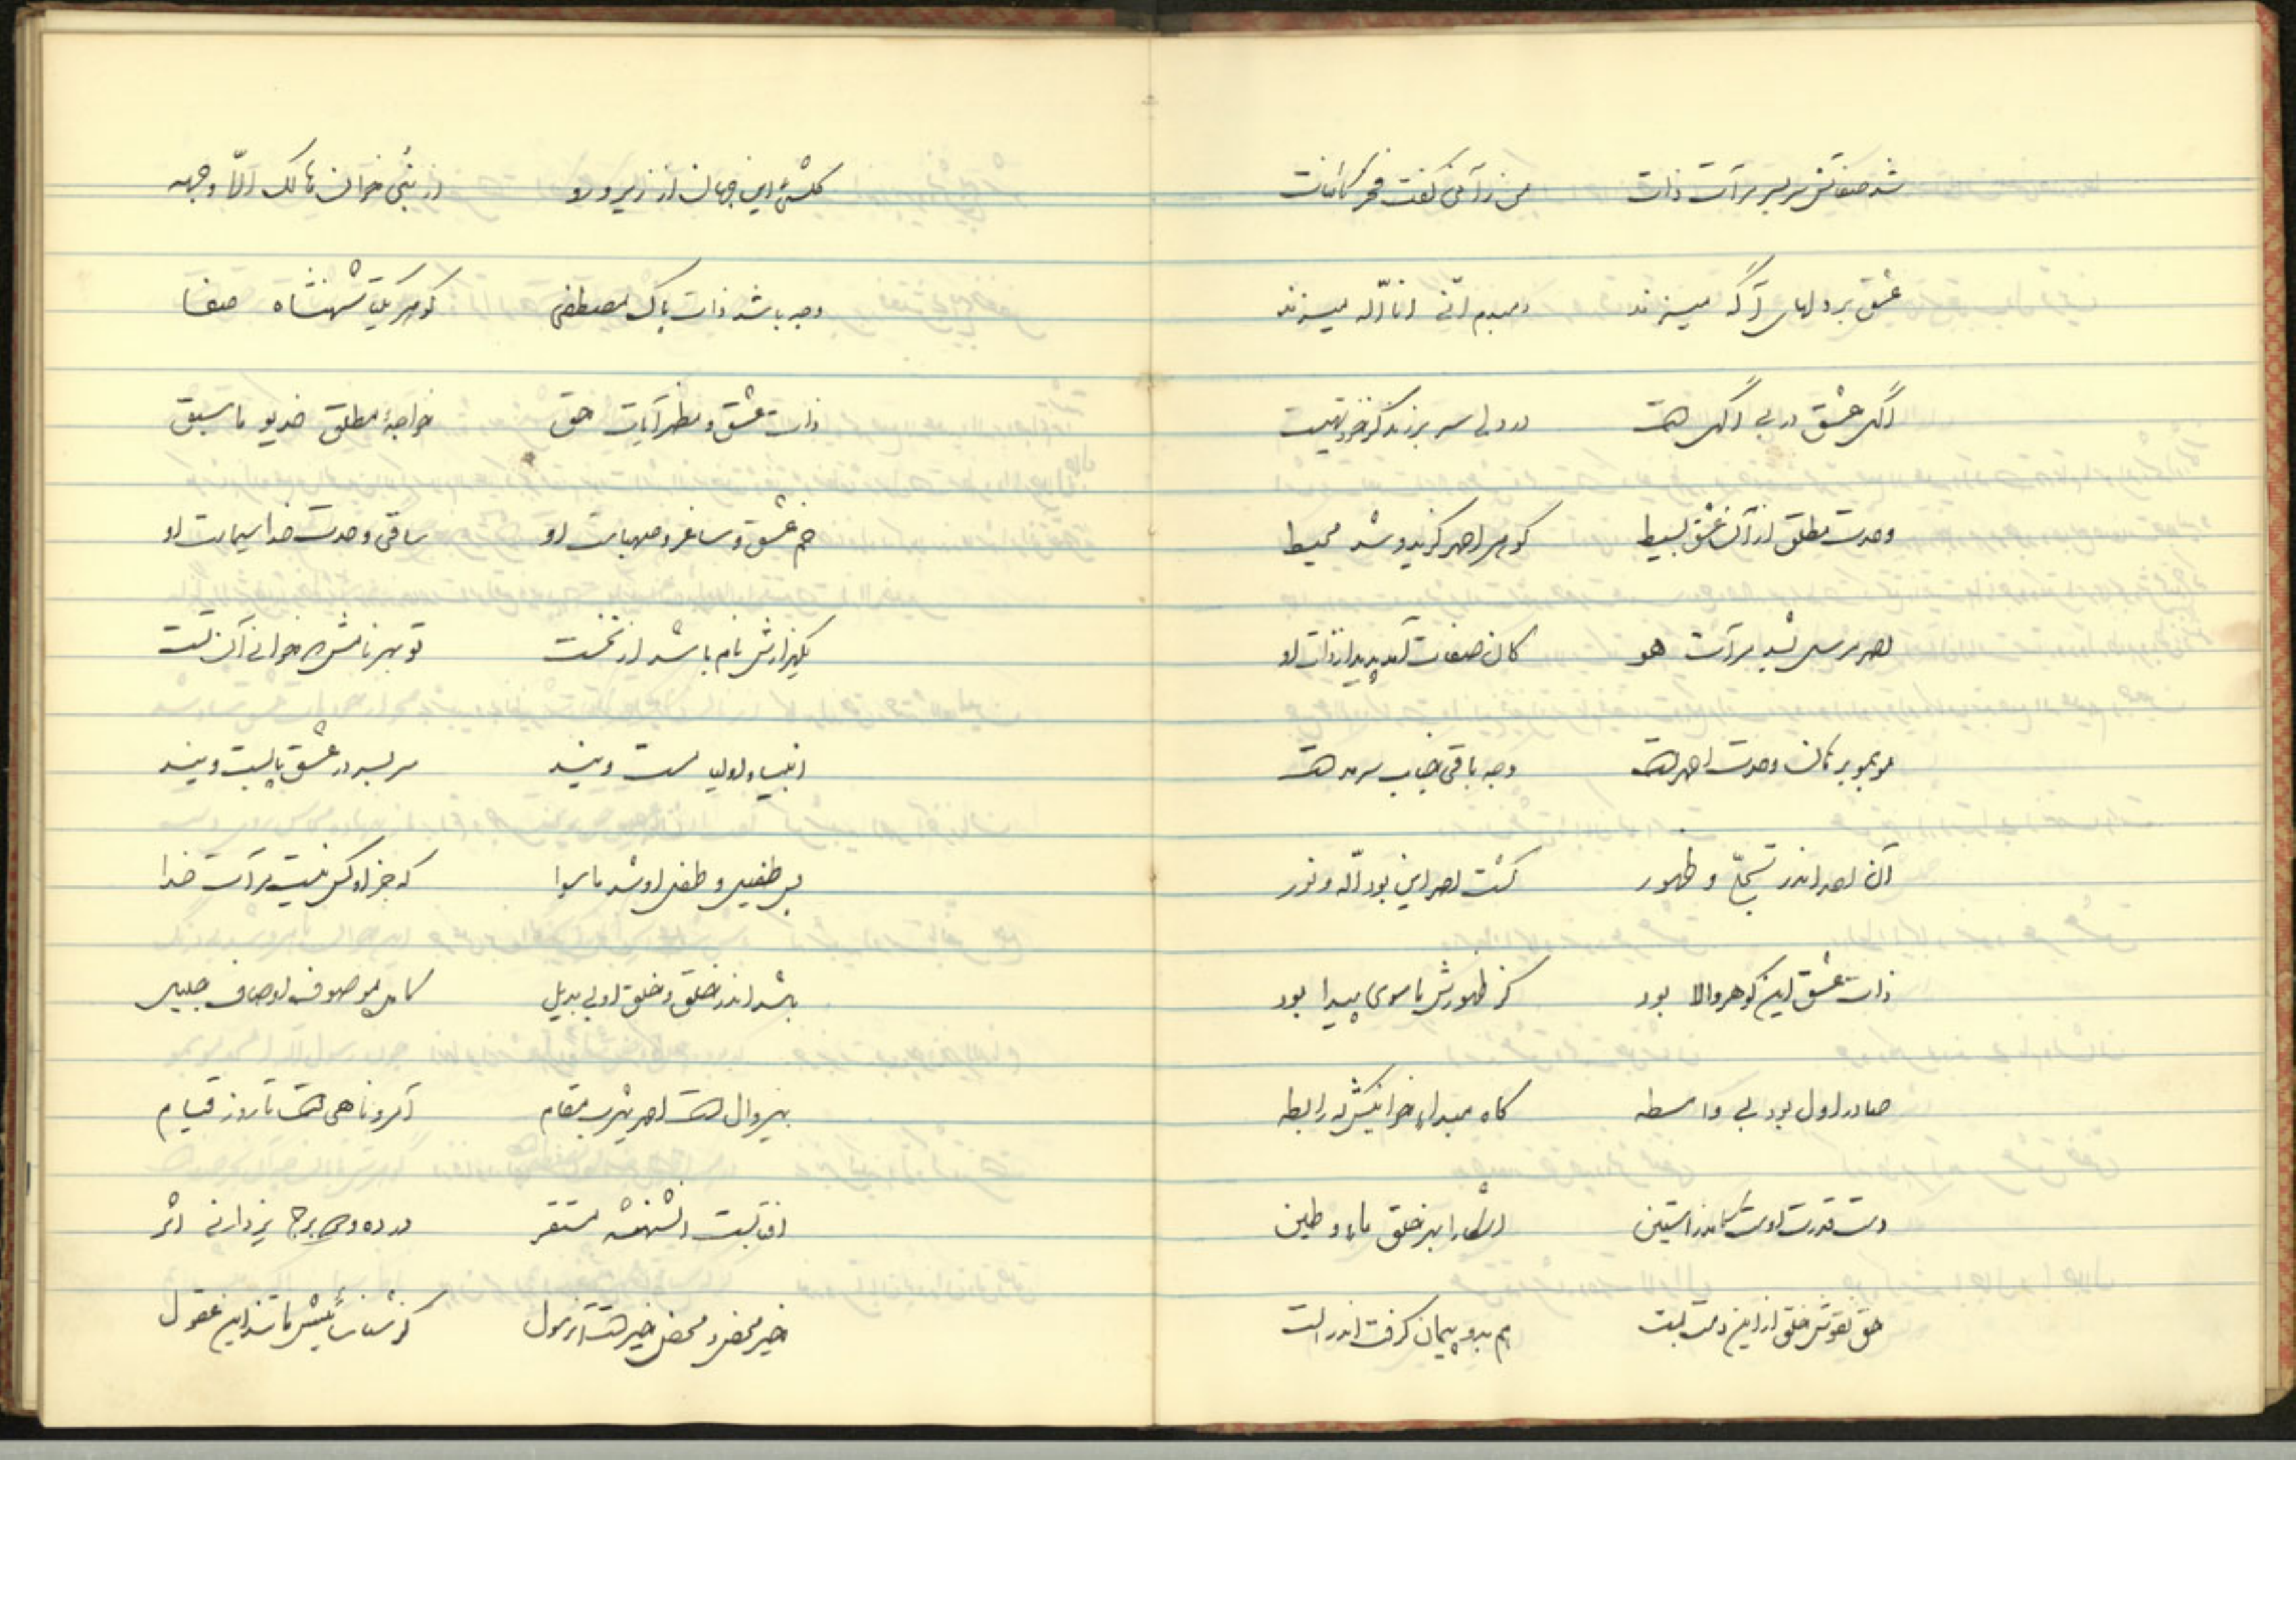 شد صفاتش سر بسر مرآت ذات من رآنی گفت فخر کائنات
عشق بر دلهای آگه میزند دمبدم انّی انا اللّه میزند
آگهی عشق در بی آگهی است در دلی سر برزند کز خود تهیست
وحدت مطلق از آن عشق بسیط گوهر احمد گزید و شد محیط
احمد مرسل شد مرآت هو کان صفات آمد پدید از ذات او
مو بمو برهان وحدت احمد است وجه باقی جناب سرمد است
آن احد اندر تجلّی و ظهور گشت احمد این بود اللّه و نور
ذات عشق این گوهر والا بود کز ظهورش ماسوی پیدا بود
صادر اول بود بی واسطه گاه مبداء خوانیش گه رابطه
دست قدرت اوست کامد زاستین آشکارا بهر خلق ماء و طین
حق نقوش خلق از این دست بست هم بدو پیمان گرفت اندر الست
کلشئ این جهان از زیر و رو از نُبی خوان هالک الّا وجهه
وجه باشد ذات پاک مصطفی گوهر یکتا شهنشاه صفا
ذات عشق و مظهر آیات حق خواجهٔ مطلق خدیو ماسبق
خم عشق و ساغر و صهباست او ساقی وحدت خدا سیماست او
یکهزارش نام باشد از نخست تو بهر نامش خوانی آن تست
انبیا و اولیا مست ویند سر بسر در عشق پابست ویند
بر طفیل و طفل او شد ماسوا که جز او کس نیست مرآت خدا
باشد اندر خلق و خلق او بی بدیل کامل موصوف اوصاف جلیل
بیزوال است احمد یثرب مقام آمر و ناهی است تا روز قیام
آفتابست آن شهنشه مستقر در ده و دو برج یزدانی اثر
خیر محض و محض خیر است آن رسول کز شناسائیش ماتند این عقول